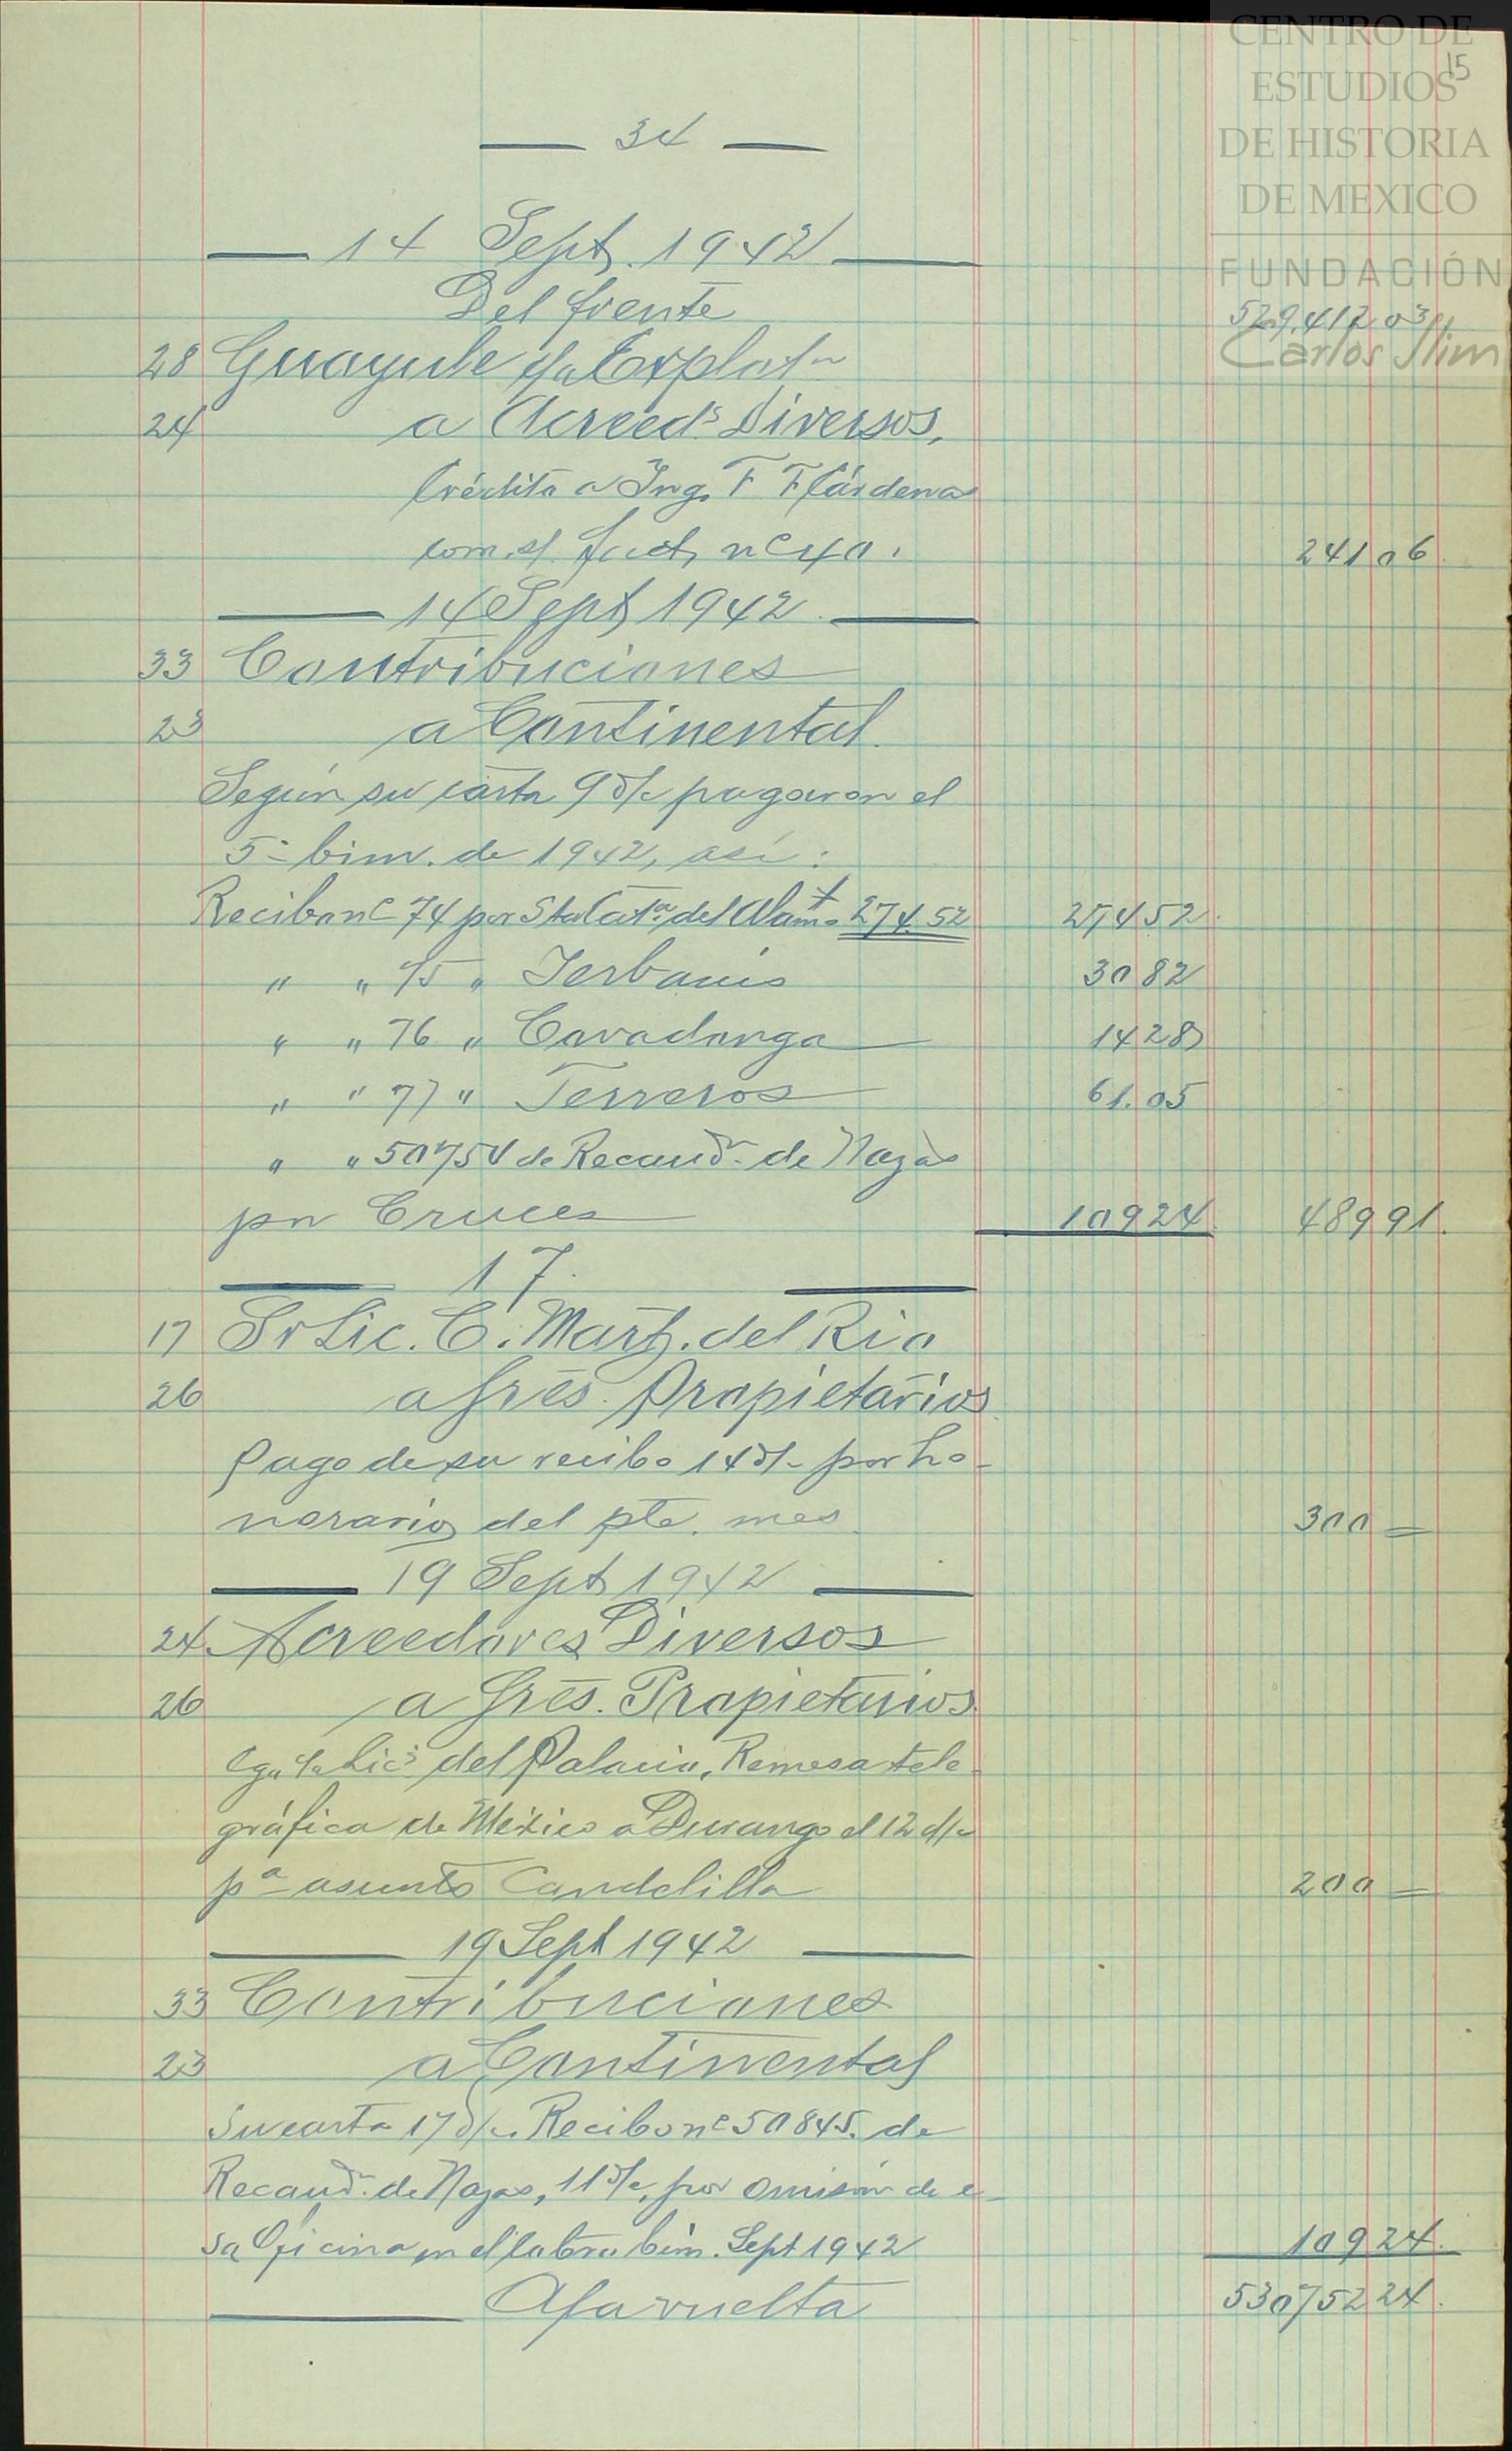 CENTRO DE
ESTUDIOS
DE HISTORIA
DE MEXICO
FUNDACIÓN
Carlos Slim
15
— 34 —
14 Sept. 1942
Del frente 529,412 03
28 Guayule Explotn
24 a Acreeds. Diversos,
Crédito a Ing. F F Cárdenas
com. s/ fact, nº 40. 241 06
14 Sept, 1942
33 Contribuciones
23 a Continental.
Según su carta 9 d/c pagaron el
5º bim. de 1942, así:
Recibo nº 74 por Sta Cata. del Alamo 274.52 274 52
" " 75 " Yerbanis 30 82
" " 76 " Covadonga 14 28
" " 77 " Terreros 61.05
" " 50754 de Recaudn. de Nazas
por Cruces 109 24 489 91.
17.
17 Sr Lic. C. Martz. del Rio
26 a Sres. Propietarios
Pago de su recibo 14 d/c por ho-
norarios del pte. mes 300 =
19 Sept, 1942
24 Acreedores Diversos
26 a Sres. Propietarios.
Lics del Palacio, Remesa tele-
gráfica de México a Durango el 12 d/c
pa asunto Candelilla 200 =
19 Sept 1942
33 Contribuciones
23 a Continental
Su carta 17 d/c. Recibo nº 50845. de
Recaudn. de Nazas, 11 d/c, por omisión de e-
sa Oficina en el cobro bim. Sept 1942 109 24.
A la vuelta 530752 24.